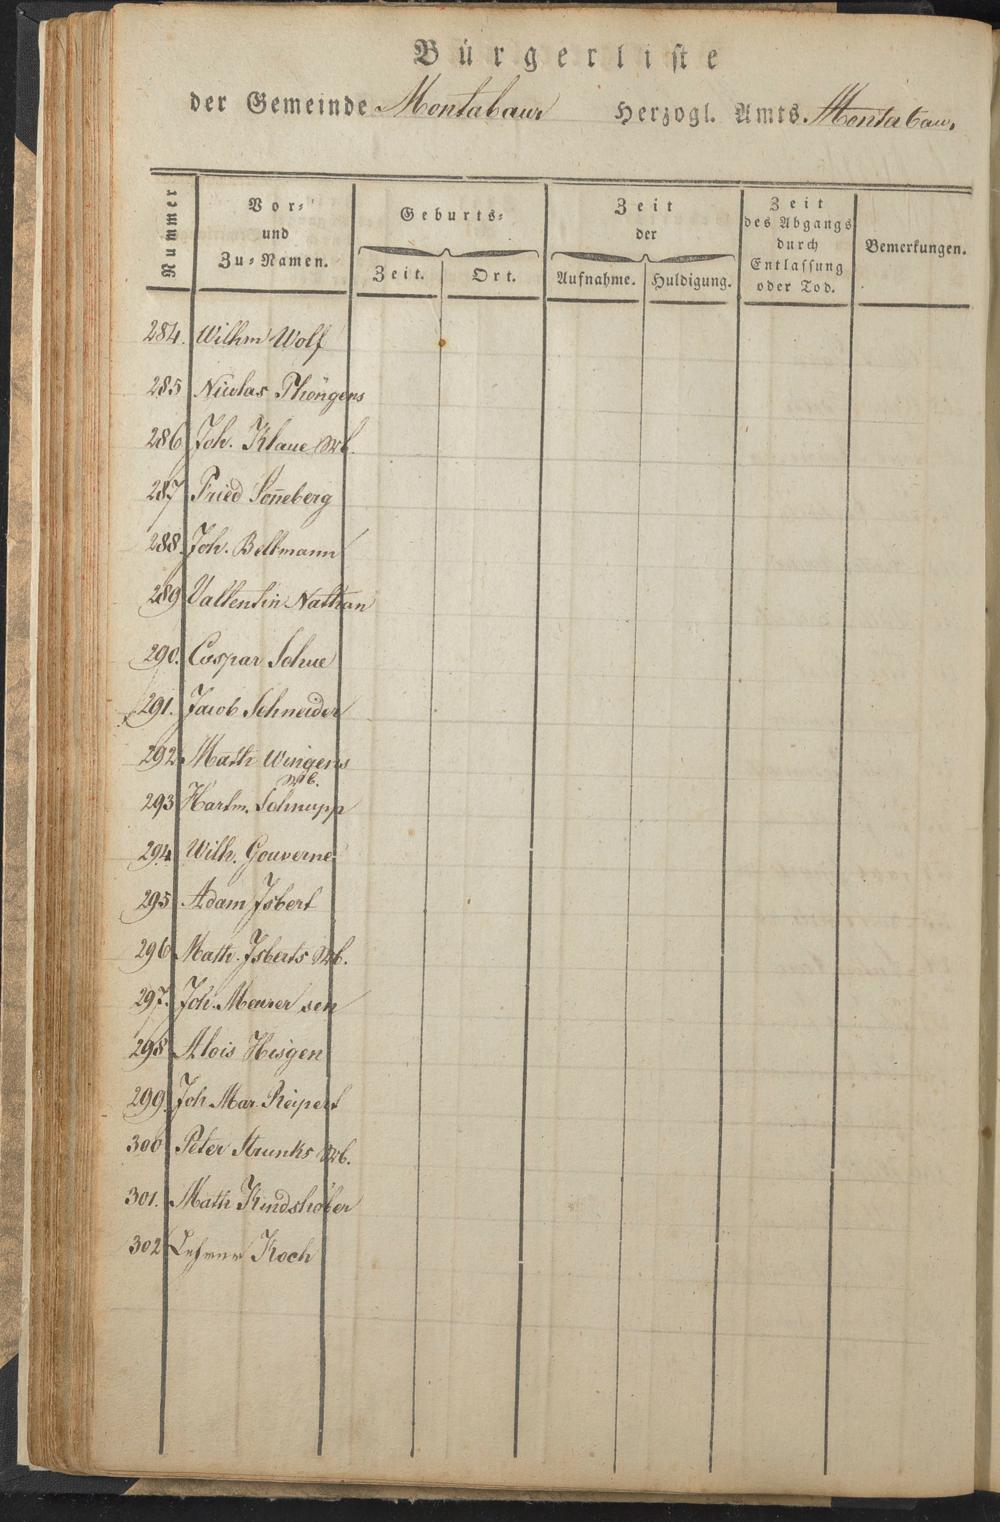 Bürgerliste
der Gemeinde Montabaur Herzogl. Amts Montabaur
Nummer
Vor-
und
Zu-Namen.
Geburts-
Zeit.
Ort.
Zeit
der
Aufnahme.
Huldigung.
Zeit
des Abgangs
durch
Entlassung
oder Tod.
Bemerkungen.
284. Wilhm Wolf
285 Nicolas Thöngens
286 Joh. Klaue Wb.
287 Fried Soneberg
288. Joh. Bellmann
289 Vallentin Nathan
290. Caspar Schue
291. Jacob Schneider
292 Math Wingens
Wb.
293 Hartm. Schnupp
294 Wilh. Gouverne
295 Adam Isbert
296 Math. Isberts Wb.
297. Joh. Meurer sen
298 Alois Hisgen
299. Joh Mar. Reipert
300 Peter Strunks Wb.
301. Math Kindshöfer
302 Lehrer Koch